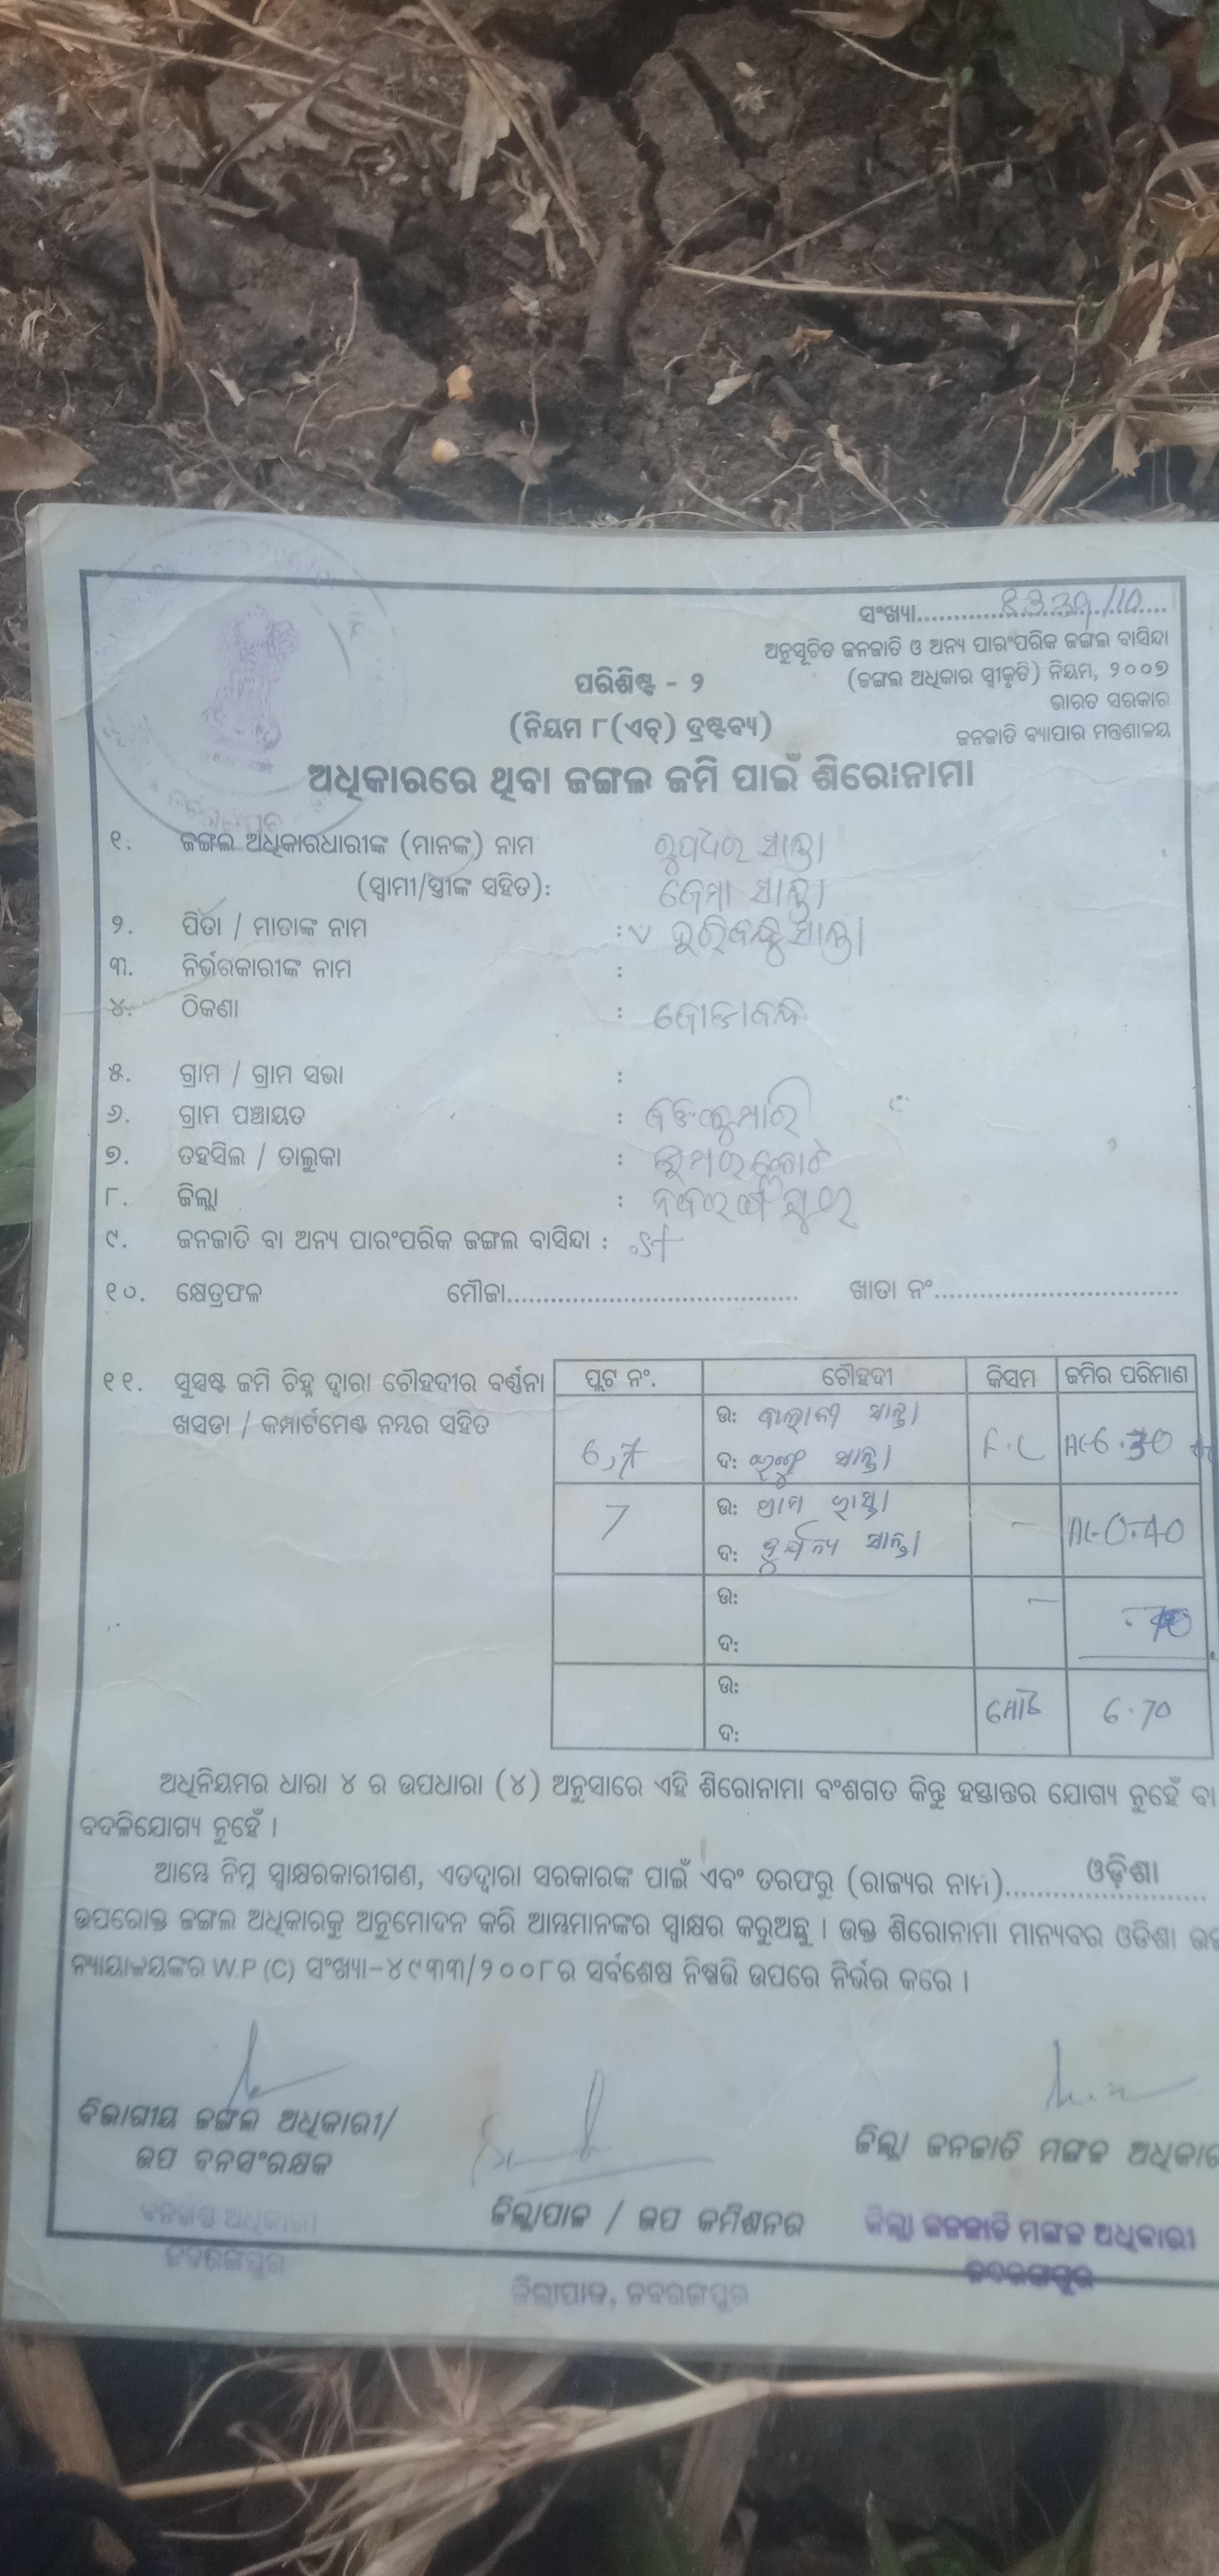 ସଂଖ୍ୟା....................../10....
ଅନୁସୂଚିତ ଜନଜାତି ଓ ଅନ୍ୟ ପାରଂପରିକ ଜଙ୍ଗଲ ବାସିନ୍ଦା
(ଜଙ୍ଗଲ ଅଧିକାର ସ୍ୱୀକୃତି) ନିୟମ, ୨୦୦୭
ଭାରତ ସରକାର
ଜନଜାତି ବ୍ୟାପାର ମନ୍ତ୍ରଣାଳୟ
ପରିଶିଷ୍ଟ - ୨
(ନିୟମ ୮(ଏଚ୍) ଦ୍ରଷ୍ଟବ୍ୟ)
ଅଧିକାରରେ ଥିବା ଜଙ୍ଗଲ ଜମି ପାଇଁ ଶିରୋନାମା
୧. ଜଙ୍ଗଲ ଅଧିକାରଧାରୀଙ୍କ (ମାନଙ୍କ) ନାମ ରୁପଧର ସାନ୍ତା
(ସ୍ୱାମୀ/ସ୍ତ୍ରୀଙ୍କ ସହିତ): ସାନ୍ତା
୨. ପିତା / ମାତାଙ୍କ ନାମ : ସାନ୍ତା
୩. ନିର୍ଭରକାରୀଙ୍କ ନାମ :
୪. ଠିକଣା :
୫. ଗ୍ରାମ / ଗ୍ରାମ ସଭା :
୬. ଗ୍ରାମ ପଞ୍ଚାୟତ :
୭. ତହସିଲ / ତାଲୁକା :
୮. ଜିଲ୍ଲା :
୯. ଜନଜାତି ବା ଅନ୍ୟ ପାରଂପରିକ ଜଙ୍ଗଲ ବାସିନ୍ଦା : ST
୧୦. କ୍ଷେତ୍ରଫଳ ମୌଜା........................................ ଖାତା ନଂ..................................
୧୧. ସୁସ୍ପଷ୍ଟ ଜମି ଚିହ୍ନ ଦ୍ୱାରା ଚୌହଦୀର ବର୍ଣ୍ଣନା
ଖସଡା / କମ୍ପାର୍ଟମେଣ୍ଟ ନମ୍ବର ସହିତ
ପ୍ଲଟ ନଂ. ଚୌହଦୀ କିସମ ଜମିର ପରିମାଣ
ଉ: ସାନ୍ତା
6,7 ଦ: ସାନ୍ତା F.C AC-6.30
ଉ:
7 ଦ: ସାନ୍ତା - AC-0.40
ଉ: -
ଦ:
ଉ: ମୋଟ 6.70
ଦ:
ଅଧିନିୟମର ଧାରା ୪ ର ଉପଧାରା (୪) ଅନୁସାରେ ଏହି ଶିରୋନାମା ବଂଶଗତ କିନ୍ତୁ ହସ୍ତାନ୍ତର ଯୋଗ୍ୟ ନୁହେଁ ବା
ବଦଳିଯୋଗ୍ୟ ନୁହେଁ ।
ଆମ୍ଭେ ନିମ୍ନ ସ୍ୱାକ୍ଷରକାରୀଗଣ, ଏତଦ୍ୱାରା ସରକାରଙ୍କ ପାଇଁ ଏବଂ ତରଫରୁ (ରାଜ୍ୟର ନାମ)....ଓଡ଼ିଶା....
ଉପରୋକ୍ତ ଜଙ୍ଗଲ ଅଧିକାରକୁ ଅନୁମୋଦନ କରି ଆମ୍ଭମାନଙ୍କର ସ୍ୱାକ୍ଷର କରୁଅଛୁ । ଉକ୍ତ ଶିରୋନାମା ମାନ୍ୟବର ଓଡିଶା
ନ୍ୟାୟାଳୟଙ୍କର W.P (C) ସଂଖ୍ୟା-୪୯୩୩/୨୦୦୮ର ସର୍ବଶେଷ ନିଷ୍ପତ୍ତି ଉପରେ ନିର୍ଭର କରେ ।
ବିଭାଗୀୟ ଜଙ୍ଗଲ ଅଧିକାରୀ/
ଉପ ବନସଂରକ୍ଷକ
ଜିଲ୍ଲାପାଳ / ଉପ କମିଶନର
ଜିଲ୍ଲା ଜନଜାତି ମଙ୍ଗଳ
ବନଖଣ୍ଡ ଅଧିକାରୀ
ନବରଙ୍ଗପୁର
ଜିଲ୍ଲାପାଳ, ନବରଙ୍ଗପୁର
ଜିଲ୍ଲା ଜନଜାତି ମଙ୍ଗଳ ଅଧିକାରୀ
ନବରଙ୍ଗପୁର